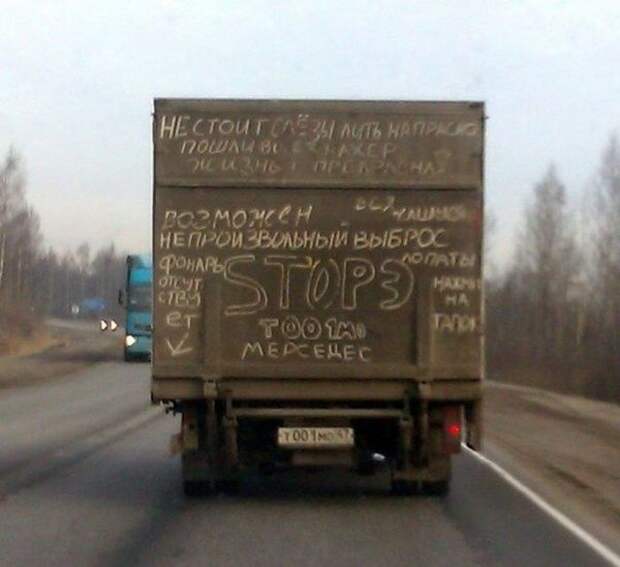 НЕ СТОИТ СЛЁЗЫ ЛИТЬ НАПРАСНО
ПОШЛИ ВСЕХ НАХЕР
ЖИЗНЬ ПРЕКРАСНА
ВОЗМОЖЕН
НЕПРОИЗВОЛЬНЫЙ ВЫБРОС
ЛОПАТЫ
ФОНАРЬ
ОТСУТ
СТВУ
ЕТ
STOPЭ
НАЖМИ
НА
ТАПОК
Т001МО
МЕРСЕДЕС
Т001МО